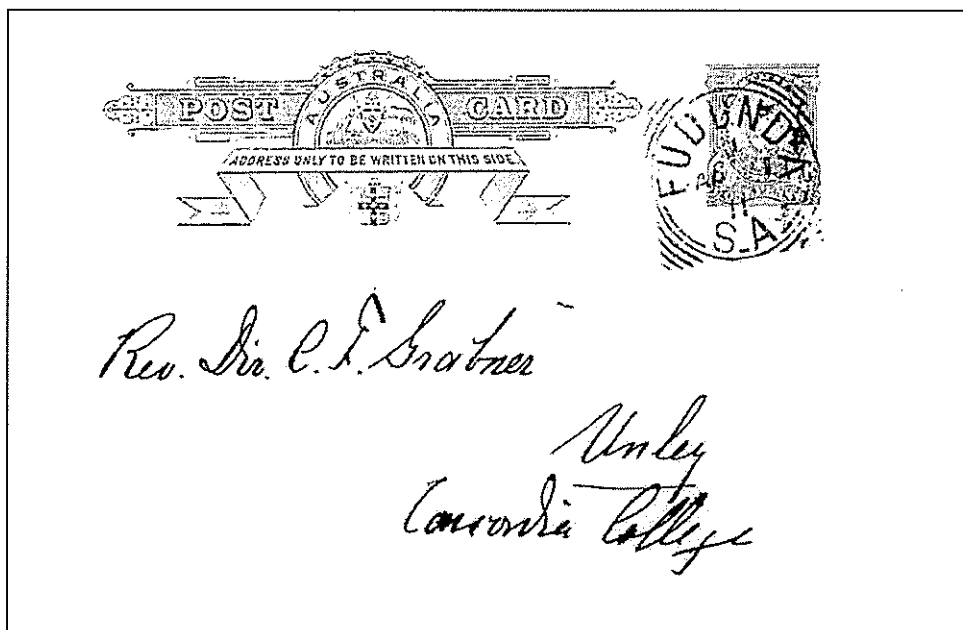 POST CARD
AUSTRALIA
ADDRESS ONLY TO BE WRITTEN ON THIS SIDE.
EUDUNDA
AP
11
S.A
Rev. Dir. C. F. Grabner
Unley
Concordia College